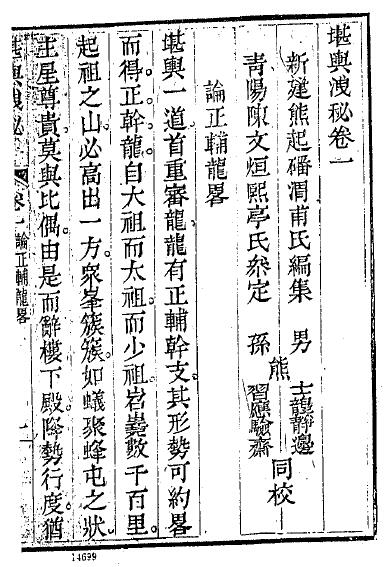 堪輿洩秘卷一
新建熊起磻渭甫氏編集 男 士龍靜邊
熊 同校
青陽陳文烜熙亭氏叅定 孫 習應驗齋
論正輔龍畧
堪輿一道首重審龍龍有正輔幹支其形勢可約畧
而得正幹龍自大祖而太祖而少祖岩嶤數千百里
起祖之山必高出一方衆峯簇簇如蟻聚蜂屯之狀
主星尊貴莫與比偶由是而辭樓下殿降勢行度猶
堪輿洩秘 卷一 論正輔龍畧 一
14699